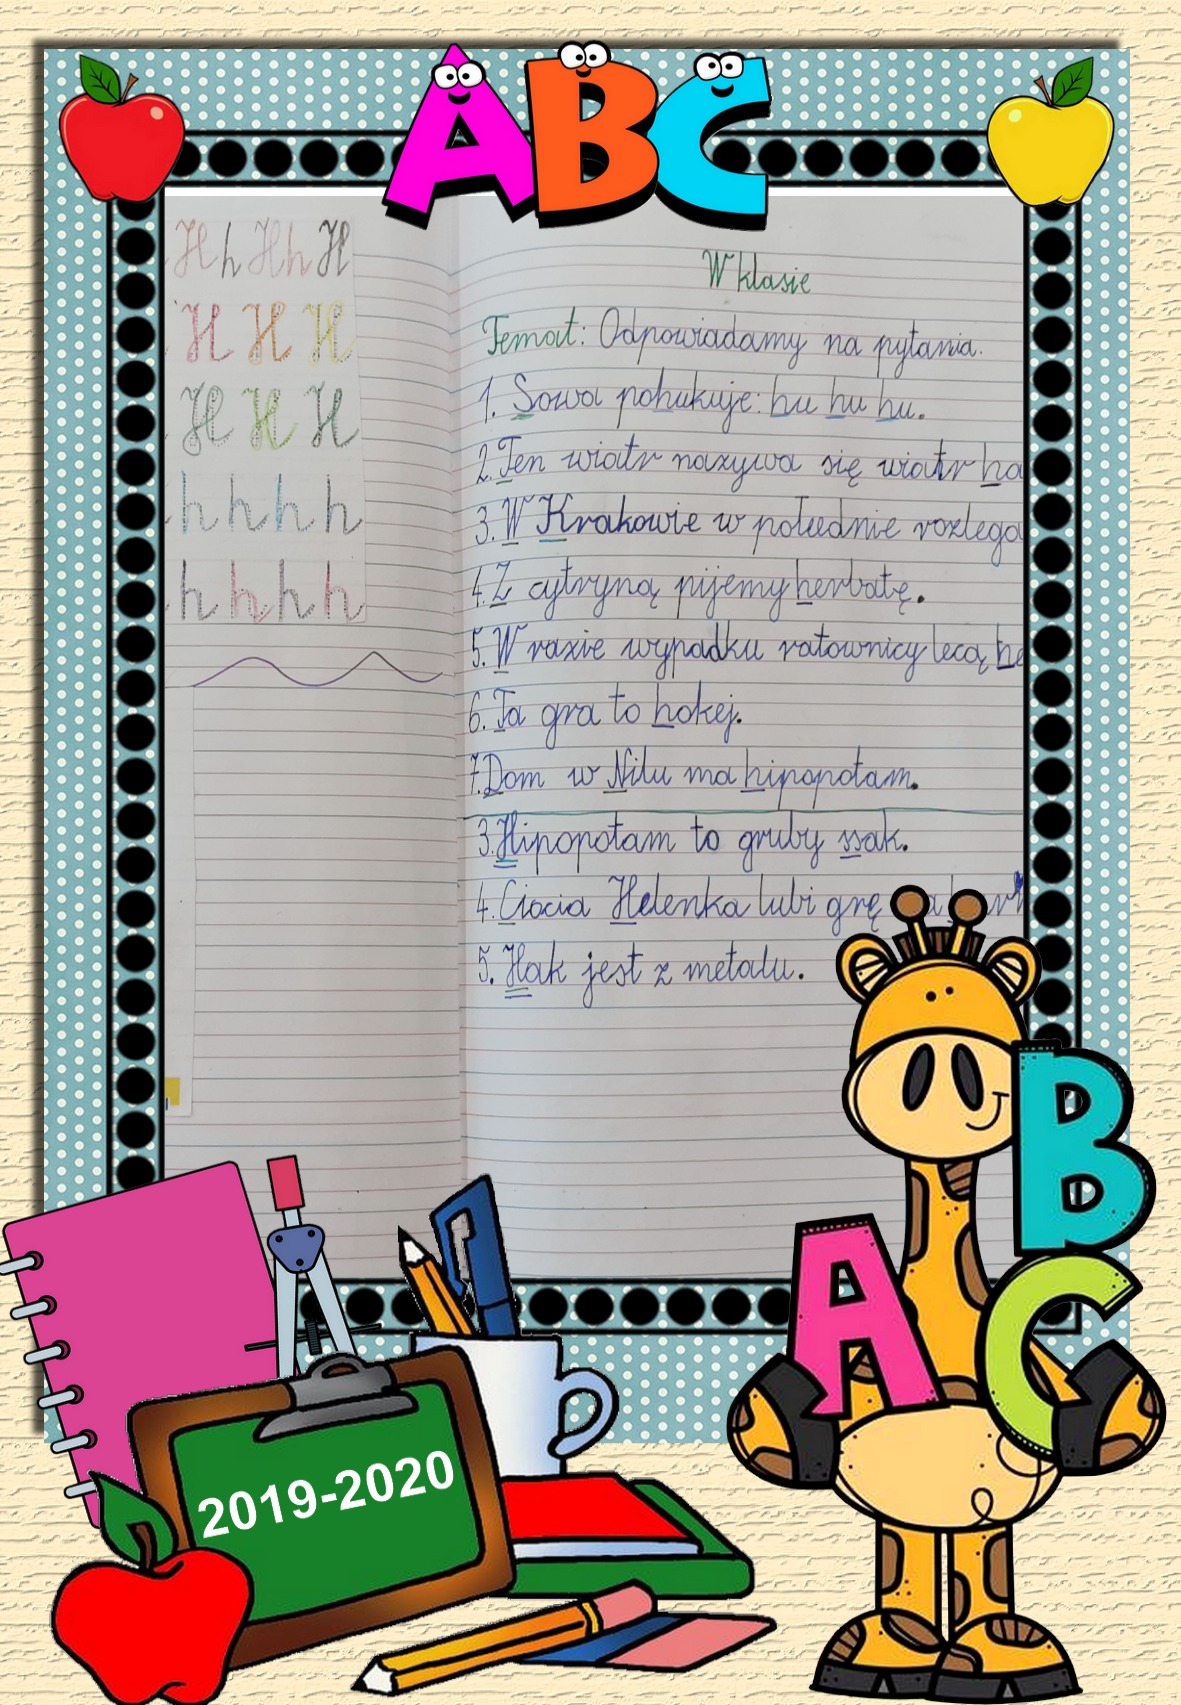 ABC
H h H h H
H H H
H H H
h h h h
h h h h
W klasie
Temat: Odpowiadamy na pytania.
1. Sowa pohukuje: hu hu hu.
2. Ten wiatr nazywa się wiatr ha
3. W Krakowie w południe rozlega
4. Z cytryną pijemy herbatę.
5. W razie wypadku ratownicy lecą he
6. Ta gra to hokej.
7. Dom w Nilu ma hipopotam.
3. Hipopotam to gruby ssak.
4. Ciocia Helenka lubi grę
5. Hak jest z metalu.
B
A C
2019-2020